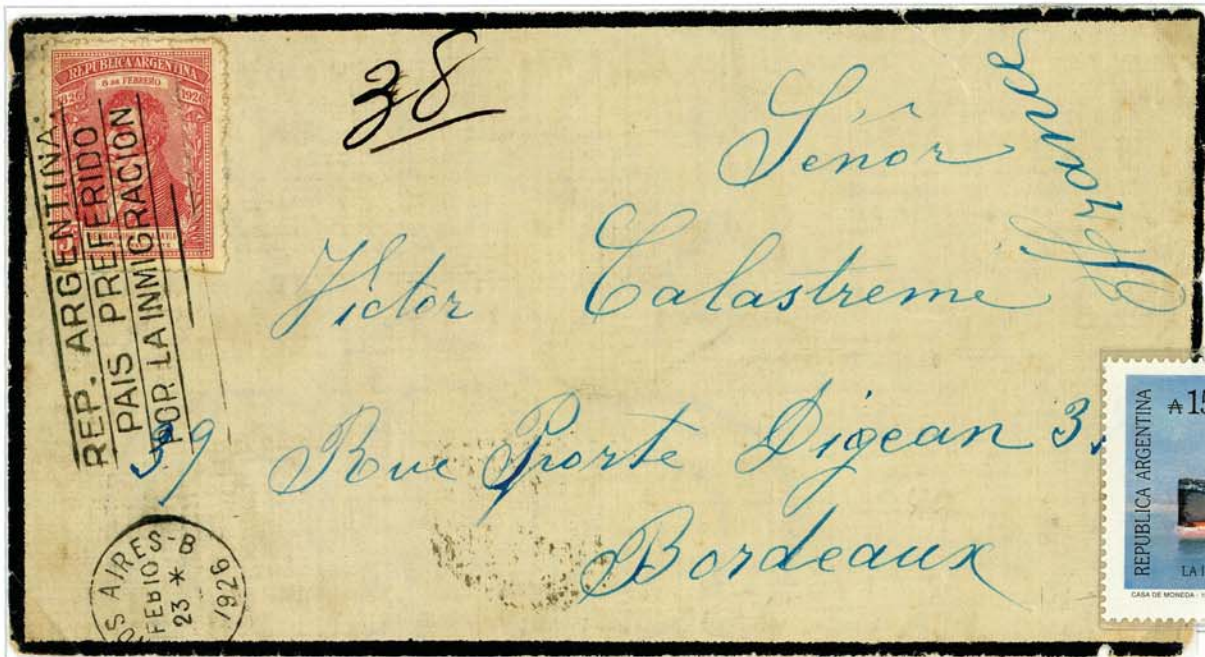 REPUBLICA ARGENTINA
8 DE FEBRERO
1826 1926
REP. ARGENTINA:
PAIS PREFERIDO
POR LA INMIGRACION
38
Señor
France
Victor Calastreme
39 Rue Porte Digean 3
Bordeaux
OS AIRES-B
FEB 10
23 *
1926
REPUBLICA ARGENTINA
₳ 15
LA I
CASA DE MONEDA